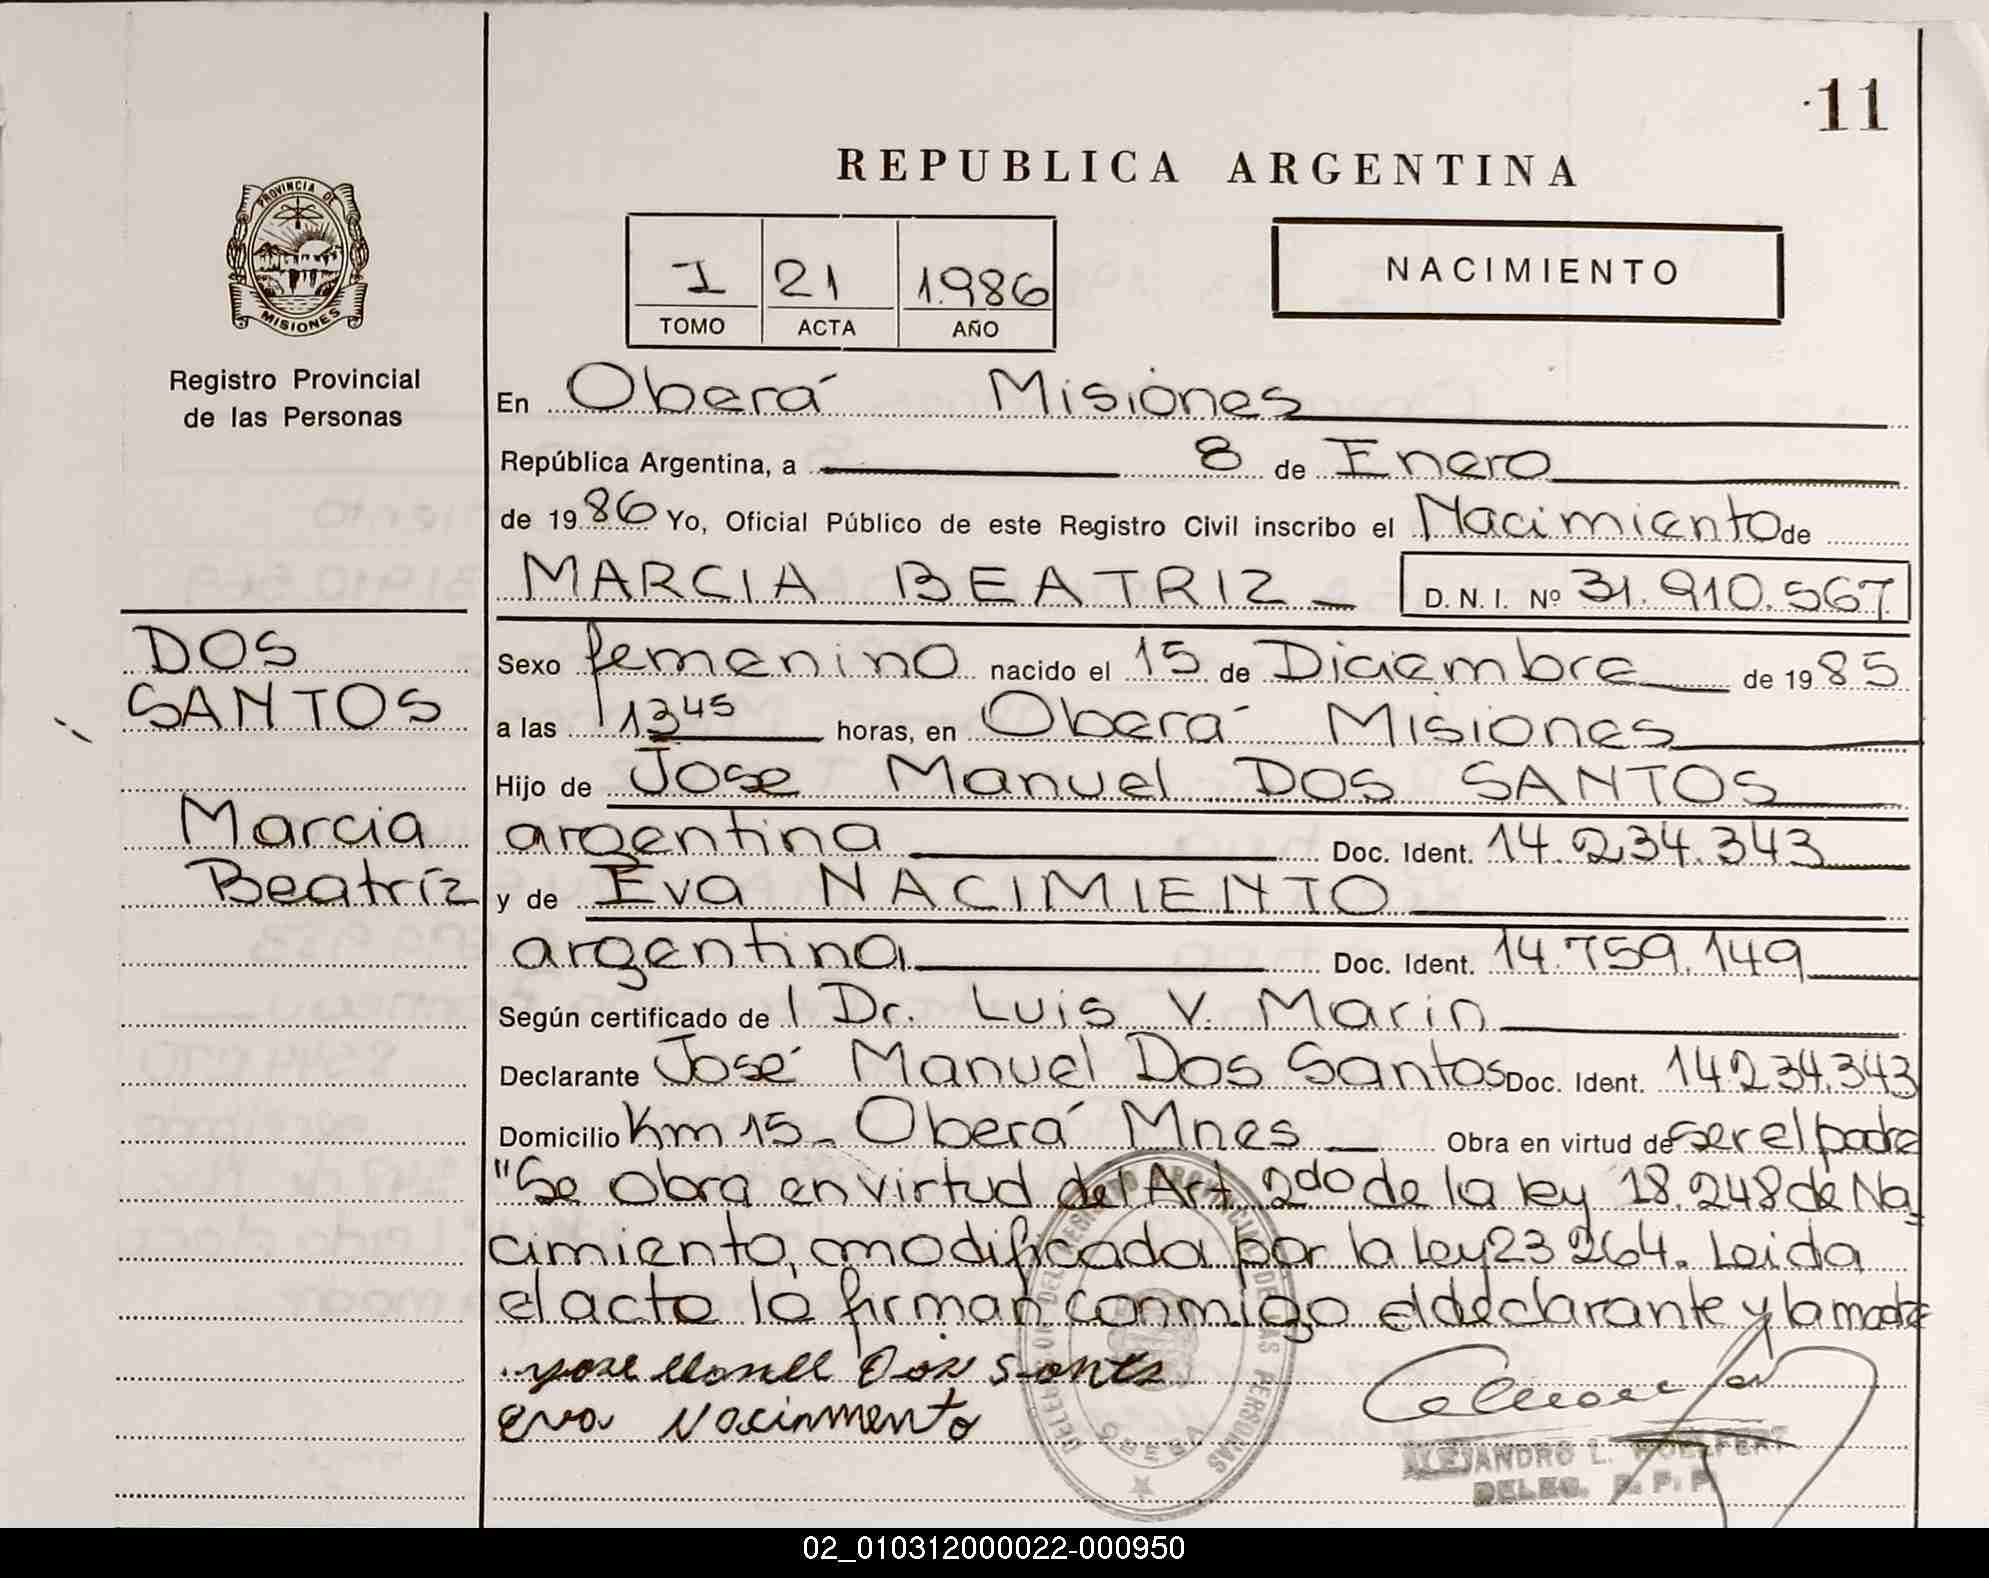 11
REPUBLICA ARGENTINA
PROVINCIA DE
MISIONES
Registro Provincial
de las Personas
I 21 1.986
TOMO ACTA AÑO
NACIMIENTO
En Oberá Misiones
República Argentina, a 8 de Enero
de 1986 Yo, Oficial Público de este Registro Civil inscribo el Nacimiento de
MARCIA BEATRIZ D.N.I. Nº 31.910.567
DOS
SANTOS
Marcia
Beatríz
Sexo femenino nacido el 15 de Diciembre de 1985
a las 13 45 horas, en Oberá Misiones
Hijo de Jose Manuel DOS SANTOS
argentina Doc. Ident. 14.234.343
y de Eva NACIMIENTO
argentina Doc. Ident. 14.759.149
Según certificado de l Dr. Luis V. Marin
Declarante José Manuel Dos Santos Doc. Ident. 14.234.343
Domicilio Km 15- Oberá Mnes Obra en virtud de ser el padre
"Se obra en virtud del Art. 2do de la ley 18.248 de Na-
cimiento, modificada por la ley 23264. Leida
el acto lo firman conmigo el declarante y la madre
Dos Santos
Eva Nacimento
ALEJANDRO L.
DELEG. R. P. P.
02_010312000022-000950